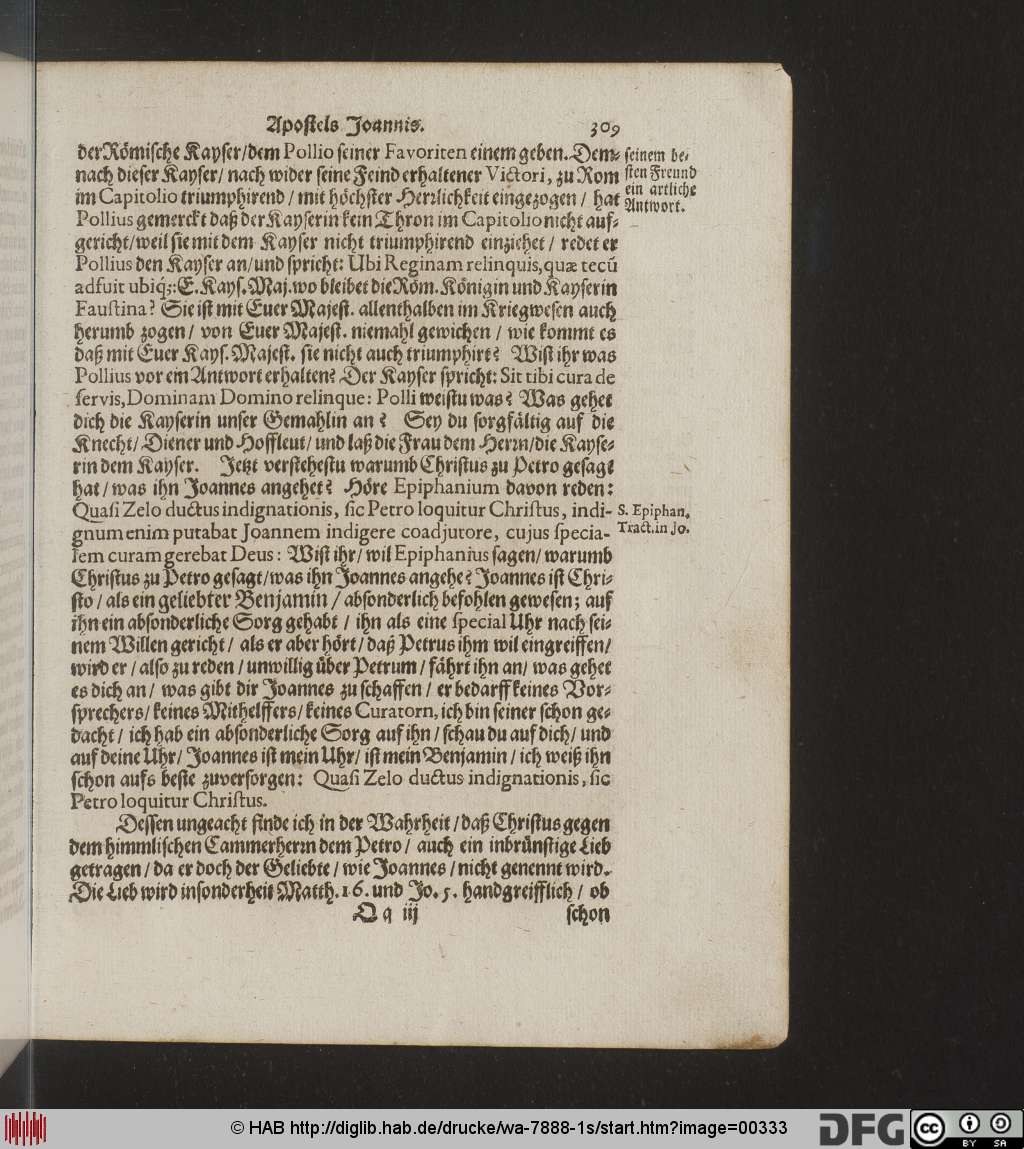 Apostels Joannis. 309
der Römische Kayser/dem Pollio seiner Favoriten einem geben. Dem-
nach dieser Kayser/ nach wider seine Feind erhaltener Victori, zu Rom
im Capitolio triumphirend / mit höchster Herrlichkeit eingezogen / hat
Pollius gemerckt daß der Kayserin kein Thron im Capitolio nicht auf-
gericht/weil sie mit dem Kayser nicht triumphirend einziehet / redet er
Pollius den Kayser an/und spricht: Ubi Reginam relinquis, quæ tecũ
adfuit ubiq́;: E. Kays. Maj. wo bleibet die Röm. Königin und Kayserin
Faustina? Sie ist mit Euer Majest. allenthalben im Kriegwesen auch
herumb zogen / von Euer Majest. niemahl gewichen / wie kommt es
daß mit Euer Kays. Majest. sie nicht auch triumphirt? Wist ihr was
Pollius vor ein Antwort erhalten? Der Kayser spricht: Sit tibi cura de
servis, Dominam Domino relinque: Polli weistu was? Was gehet
dich die Kayserin unser Gemahlin an? Sey du sorgfältig auf die
Knecht/ Diener und Hoffleut/ und laß die Frau dem Herrn/die Kayse-
rin dem Kayser. Jetzt verstehestu warumb Christus zu Petro gesagt
hat / was ihn Joannes angehet? Höre Epiphanium davon reden:
Quasi Zelo ductus indignationis, sic Petro loquitur Christus, indi-
gnum enim putabat Joannem indigere coadjutore, cujus specia-
lem curam gerebat Deus: Wist ihr/ wil Epiphanius sagen/ warumb
Christus zu Petro gesagt/was ihn Joannes angehe? Joannes ist Chri-
sto / als ein geliebter Benjamin / absonderlich befohlen gewesen; auf
ihn ein absonderliche Sorg gehabt / ihn als eine special Uhr nach sei-
nem Willen gericht / als er aber hört/ daß Petrus ihm wil eingreiffen/
wird er / also zu reden / unwillig über Petrum / fährt ihn an/ was gehet
es dich an / was gibt dir Joannes zu schaffen / er bedarff keines Vor-
sprechers/ keines Mithelffers/ keines Curatorn, ich bin seiner schon ge-
dacht / ich hab ein absonderliche Sorg auf ihn / schau du auf dich/ und
auf deine Uhr/ Joannes ist mein Uhr/ ist mein Benjamin / ich weiß ihn
schon aufs beste zuversorgen: Quasi Zelo ductus indignationis, sic
Petro loquitur Christus.
Dessen ungeacht finde ich in der Wahrheit / daß Christus gegen
dem himmlischen Cammerherrn dem Petro / auch ein inbrünstige Lieb
getragen / da er doch der Geliebte / wie Joannes / nicht genennt wird.
Die Lieb wird insonderheit Matth. 16. und Jo. 5. handgreifflich / ob
Qq iij schon
seinem be-
sten Freund
ein artliche
Antwort.
S. Epiphan.
Tract. in Jo.
© HAB http://diglib.hab.de/drucke/wa-7888-1s/start.htm?image=00333
DFG
cc
BY SA